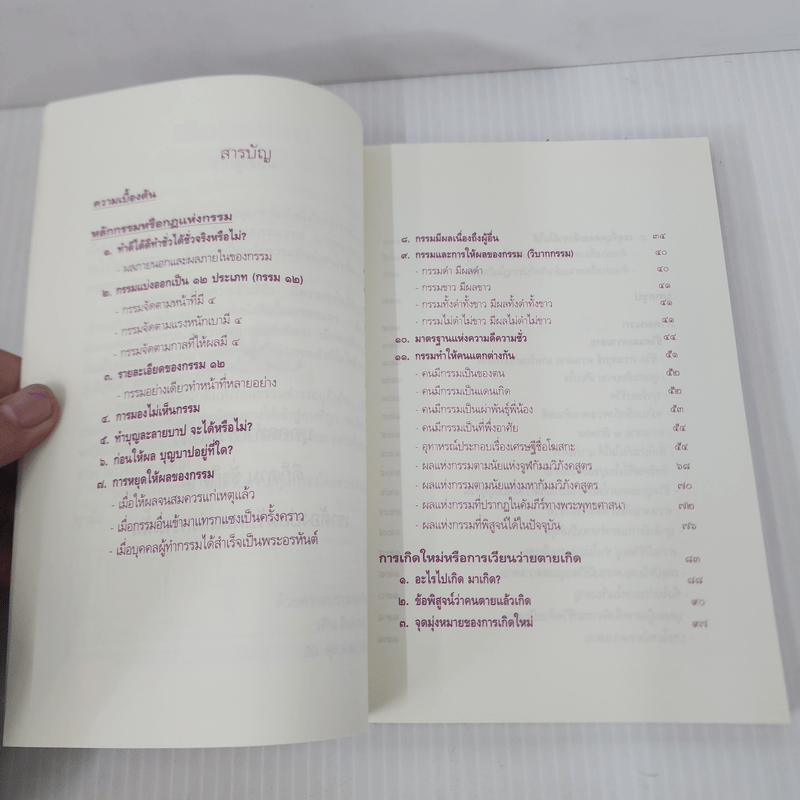 สารบัญ
ความเบื้องต้น
หลักกรรมหรือกฎแห่งกรรม
๑. ทำดีได้ดีทำชั่วได้ชั่วจริงหรือไม่?
- ผลภายนอกและผลภายในของกรรม
๒. กรรมแบ่งออกเป็น ๑๒ ประเภท (กรรม ๑๒)
- กรรมจัดตามหน้าที่มี ๔
- กรรมจัดตามแรงหนักเบามี ๔
- กรรมจัดตามกาลที่ให้ผลมี ๔
๓. รายละเอียดของกรรม ๑๒
- กรรมอย่างเดียวทำหน้าที่หลายอย่าง
๔. การมองไม่เห็นกรรม
๕. ทำบุญละลายบาป จะได้หรือไม่?
๖. ก่อนให้ผล บุญบาปอยู่ที่ใด?
๗. การหยุดให้ผลของกรรม
- เมื่อให้ผลจนสมควรแก่เหตุแล้ว
- เมื่อกรรมอื่นเข้ามาแทรกแซงเป็นครั้งคราว
- เมื่อบุคคลผู้ทำกรรมได้สำเร็จเป็นพระอรหันต์
๘. กรรมมีผลเนื่องถึงผู้อื่น ๓๔
๙. กรรมและการให้ผลของกรรม (วิบากกรรม) ๔๐
- กรรมดำ มีผลดำ ๔๐
- กรรมขาว มีผลขาว ๔๑
- กรรมทั้งดำทั้งขาว มีผลทั้งดำทั้งขาว ๔๑
- กรรมไม่ดำไม่ขาว มีผลไม่ดำไม่ขาว ๔๑
๑๐. มาตรฐานแห่งความดีความชั่ว ๔๔
๑๑. กรรมทำให้คนแตกต่างกัน ๕๑
- คนมีกรรมเป็นของตน ๕๒
- คนมีกรรมเป็นแดนเกิด ๕๒
- คนมีกรรมเป็นเผ่าพันธุ์พี่น้อง ๕๓
- คนมีกรรมเป็นที่พึ่งอาศัย ๕๔
- อุทาหรณ์ประกอบเรื่องเศรษฐีชื่อโฆสกะ ๕๔
- ผลแห่งกรรมตามนัยแห่งจูฬกัมมวิภังคสูตร ๖๘
- ผลแห่งกรรมตามนัยแห่งมหากัมมวิภังคสูตร ๗๐
- ผลแห่งกรรมที่ปรากฏในคัมภีร์ทางพระพุทธศาสนา ๗๒
- ผลแห่งกรรมที่พิสูจน์ได้ในปัจจุบัน ๗๖
การเกิดใหม่หรือการเวียนว่ายตายเกิด ๘๓
๑. อะไรไปเกิด มาเกิด? ๘๘
๒. ข้อพิสูจน์ว่าคนตายแล้วเกิด ๙๐
๓. จุดมุ่งหมายของการเกิดใหม่ ๙๗